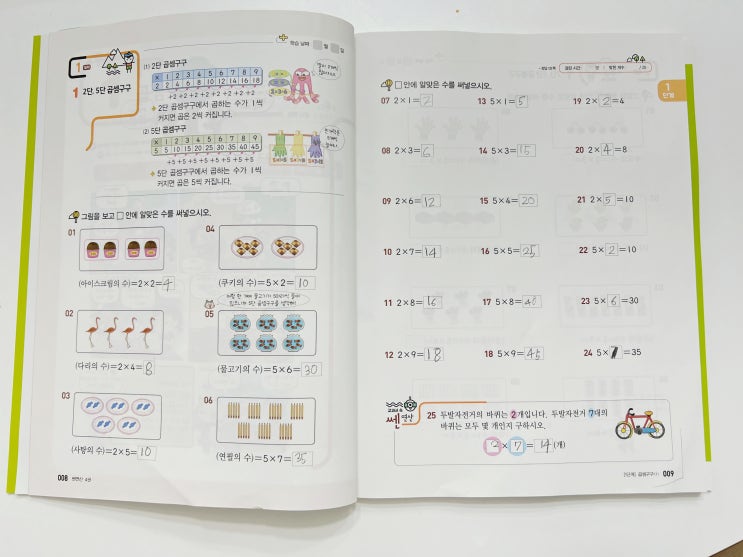 학습 날짜 월 일
1
1 2단, 5단 곱셈구구
(1) 2단 곱셈구구
× 1 2 3 4 5 6 7 8 9
2 2 4 6 8 10 12 14 16 18
+2 +2 +2 +2 +2 +2 +2 +2
2단 곱셈구구에서 곱하는 수가 1씩
커지면 곱은 2씩 커집니다.
2×3=6
(2) 5단 곱셈구구
× 1 2 3 4 5 6 7 8 9
5 5 10 15 20 25 30 35 40 45
+5 +5 +5 +5 +5 +5 +5 +5
5단 곱셈구구에서 곱하는 수가 1씩
커지면 곱은 5씩 커집니다.
그림을 보고 □ 안에 알맞은 수를 써넣으시오.
01
(아이스크림의 수)=2×2=4
02
(다리의 수)=2×4=8
03
(사탕의 수)=2×5=10
04
(쿠키의 수)=5×2=10
05
(물고기의 수)=5×6=30
06
(연필의 수)=5×7=35
008 쎈연산 4권
□ 안에 알맞은 수를 써넣으시오.
1
단계
07 2×1=2
08 2×3=6
09 2×6=12
10 2×7=14
11 2×8=16
12 2×9=18
13 5×1=5
14 5×3=15
15 5×4=20
16 5×5=25
17 5×8=40
18 5×9=45
19 2×2=4
20 2×4=8
21 2×5=10
22 5×2=10
23 5×6=30
24 5×7=35
교과서 속
쎈연산
25 두발자전거의 바퀴는 2개입니다. 두발자전거 7대의
바퀴는 모두 몇 개인지 구하시오.
2×7=14(개)
009